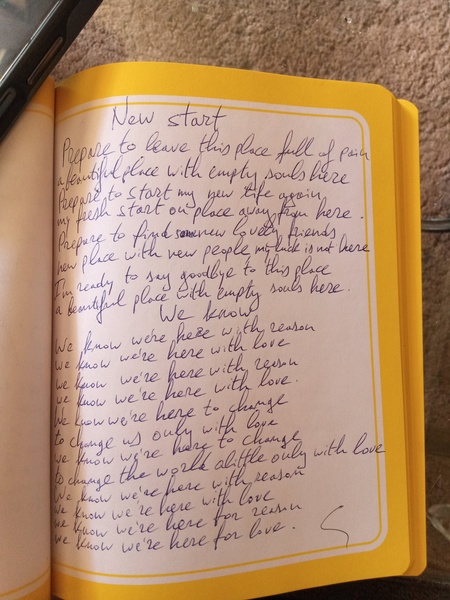 New start
Prepare to leave this place full of pain
a beautiful place with empty souls here
Prepare to start my new life again
my fresh start on place away from here.
Prepare to find new lovely friends
new place with new people my luck is not here
I'm ready to say goodbye to this place
a beautiful place with empty souls here.
We know
We know we're here with reason
we know we're here with love
we know we're here with reason
we know we're here with love.
We know we're here to change
to change us only with love
we know we're here to change
to change the world alittle only with love
We know we're here with reason
we know we're here with love
we know we're here for reason
we know we're here for love.